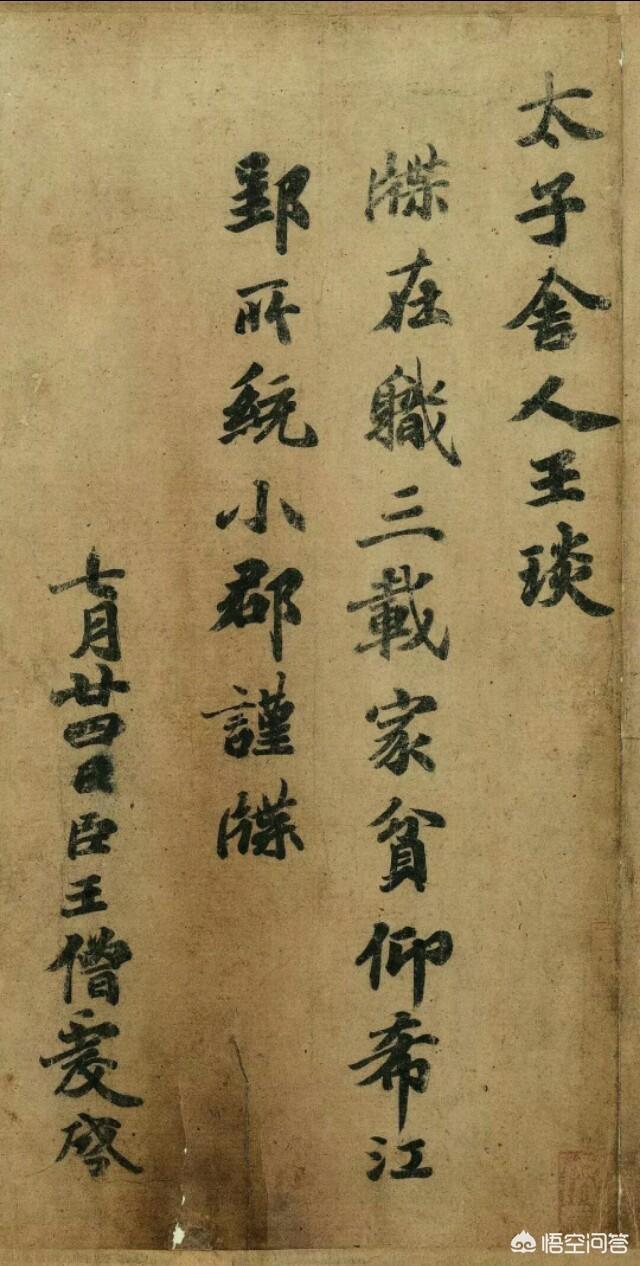 太子舍人王琰
牒在職三載家貧仰希江
郢所統小郡謹牒
七月廿四日臣王僧虔啓
悟空问答